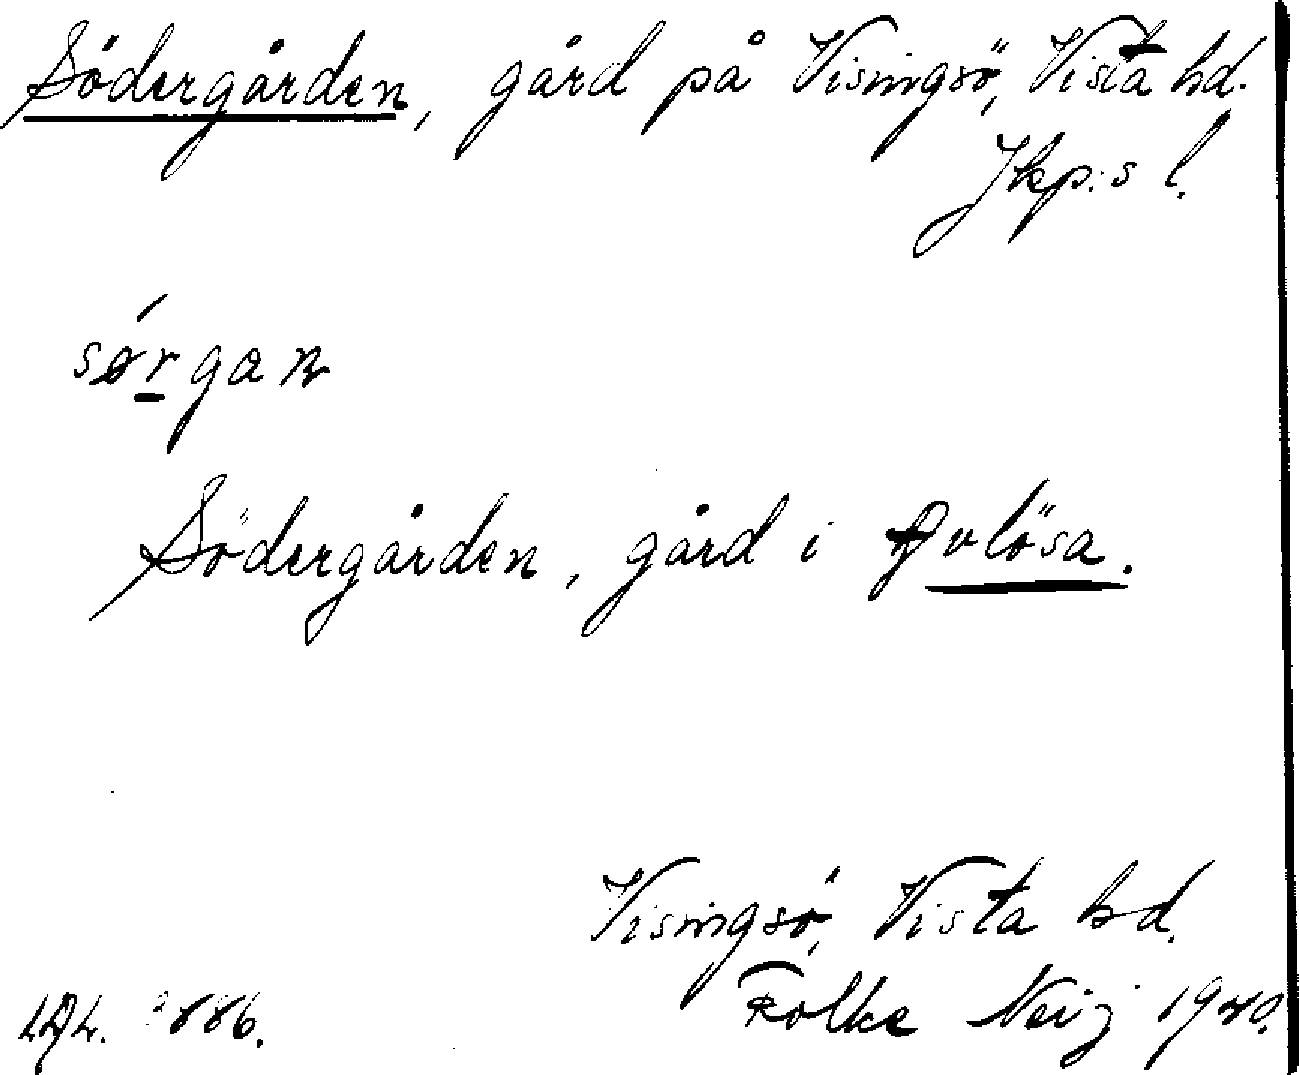 Södergården, gård på Visingsö, Vista hd.
Jkp:s l.
sørgan
Södergården, gård i Avlösa.
Visingsö, Vista hd.
Folke Neij 1940.
886.